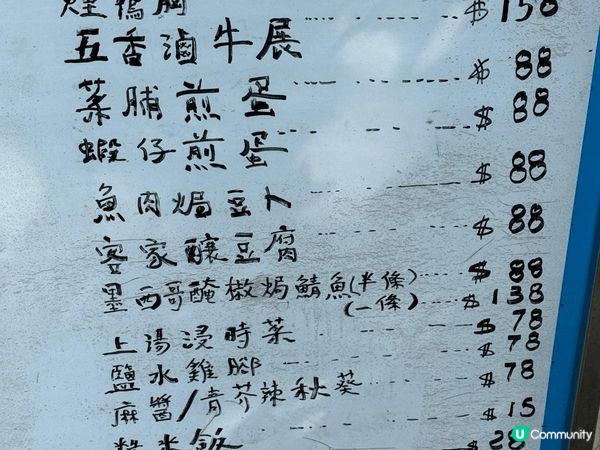 煙鴨胸
五香滷牛展 $158
菜脯煎蛋 $88
蝦仔煎蛋 $88
魚肉焗豆卜 $88
客家釀豆腐 $88
墨西哥醃橄焗鯖魚(半條) $88
(一條) $138
上湯浸時菜 $78
鹽水雞腳 $78
麻醬/青芥辣秋葵 $78
糙米飯 $15
$28
U Community